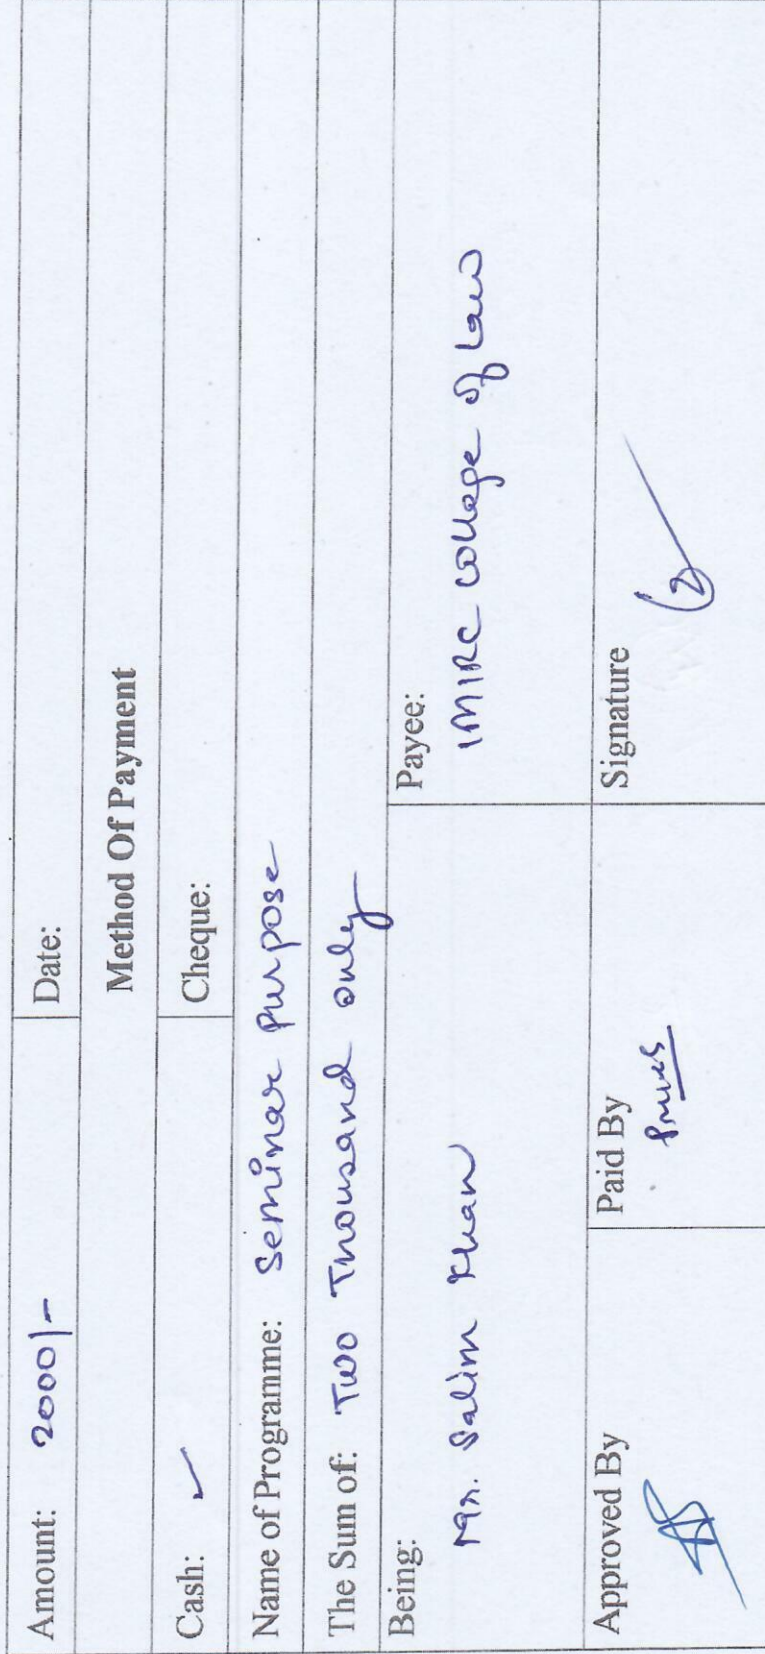 Amount: 2000/- Date:
Method Of Payment
Cash: ✓ Cheque:
Name of Programme: Seminar Purpose
The Sum of: Two Thousand only
Being: Payee:
Mr. Salim Khan IMIRC College of Law
Approved By Paid By Signature